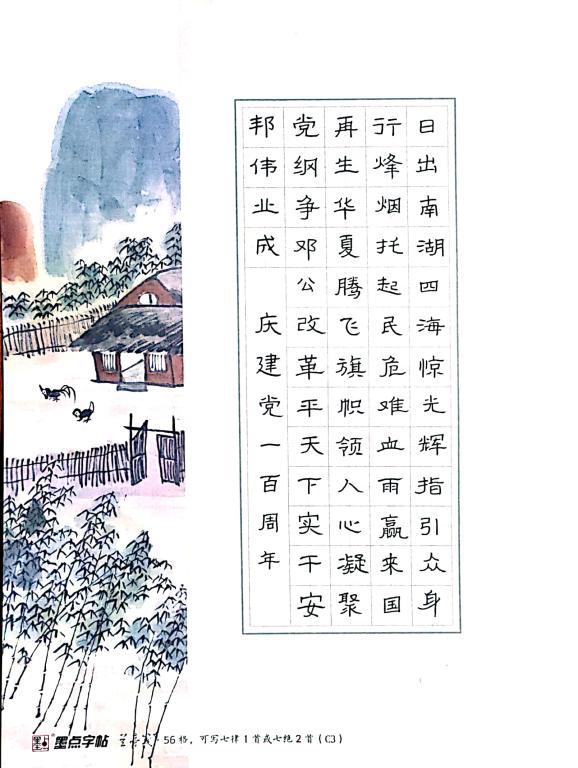 日出南湖四海惊光辉指引众身
行烽烟托起民危难血雨赢来国
再生华夏腾飞旗帜领人心凝聚
党纲争邓公改革平天下实干安
邦伟业成 庆建党一百周年
墨点字帖 56格，可写七律1首或七绝2首（C3）